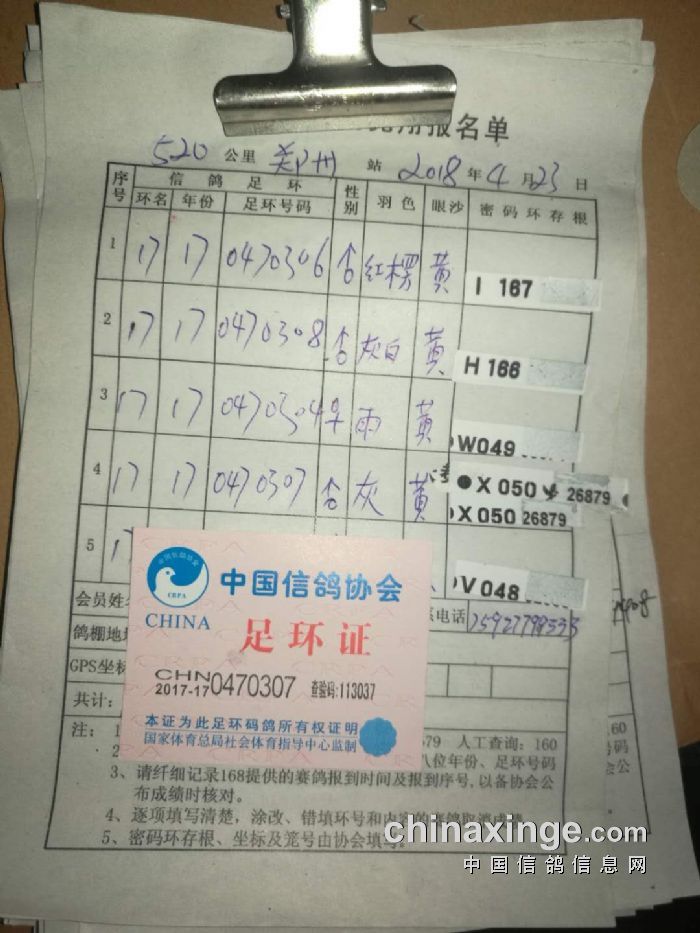 报名单
520 公里 郑州 站 2018 年 4 月 23 日
序号 信鸽足环 性别 羽色 眼沙 密码环存根
环名 年份 足环号码
1 17 17 0470306 合 红楞 黄 I 167
2 17 17 0470308 合 灰白 黄 H 166
3 17 17 0470304 雨 黄 W049
4 17 17 0470307 合 灰 黄 X 050 26879
X 050 26879
5 V 048
会员姓名 系电话
鸽棚地
GPS坐标
共计：
中国信鸽协会
CRPA
CHINA
足环证
CHN
2017-17 0470307 查验码:113037
本证为此足环码鸽所有权证明
国家体育总局社会体育指导中心监制
注： 1 579 人工查询：160
2 八位年份、足环号码
3、请纤细记录168提供的赛鸽报到时间及报到序号，以备协会公
布成绩时核对。
4、逐项填写清楚，涂改、错填环号和内容的赛鸽取消成
5、密码环存根、坐标及笼号由协会填写。
chinaxinge.com
中国信鸽信息网